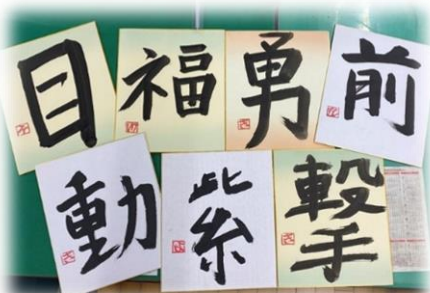 目
福
勇
前
動
紫
撃